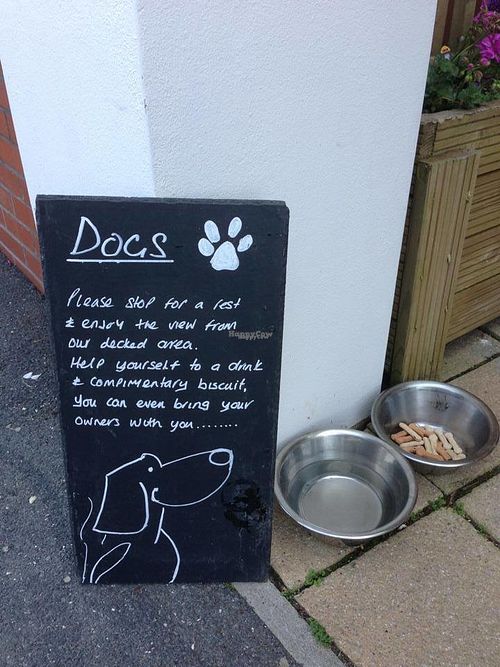 DOGS
Please stop for a rest
& enjoy the view from
our decked area.
Help yourself to a drink
& complimentary biscuit,
You can even bring your
owners with you........
HappyCow